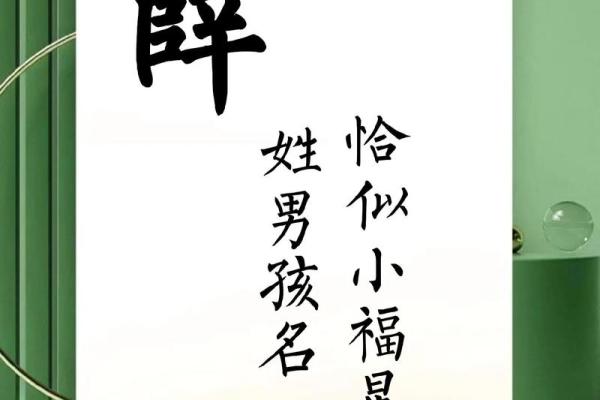 薛
姓男孩名
恰似小福星